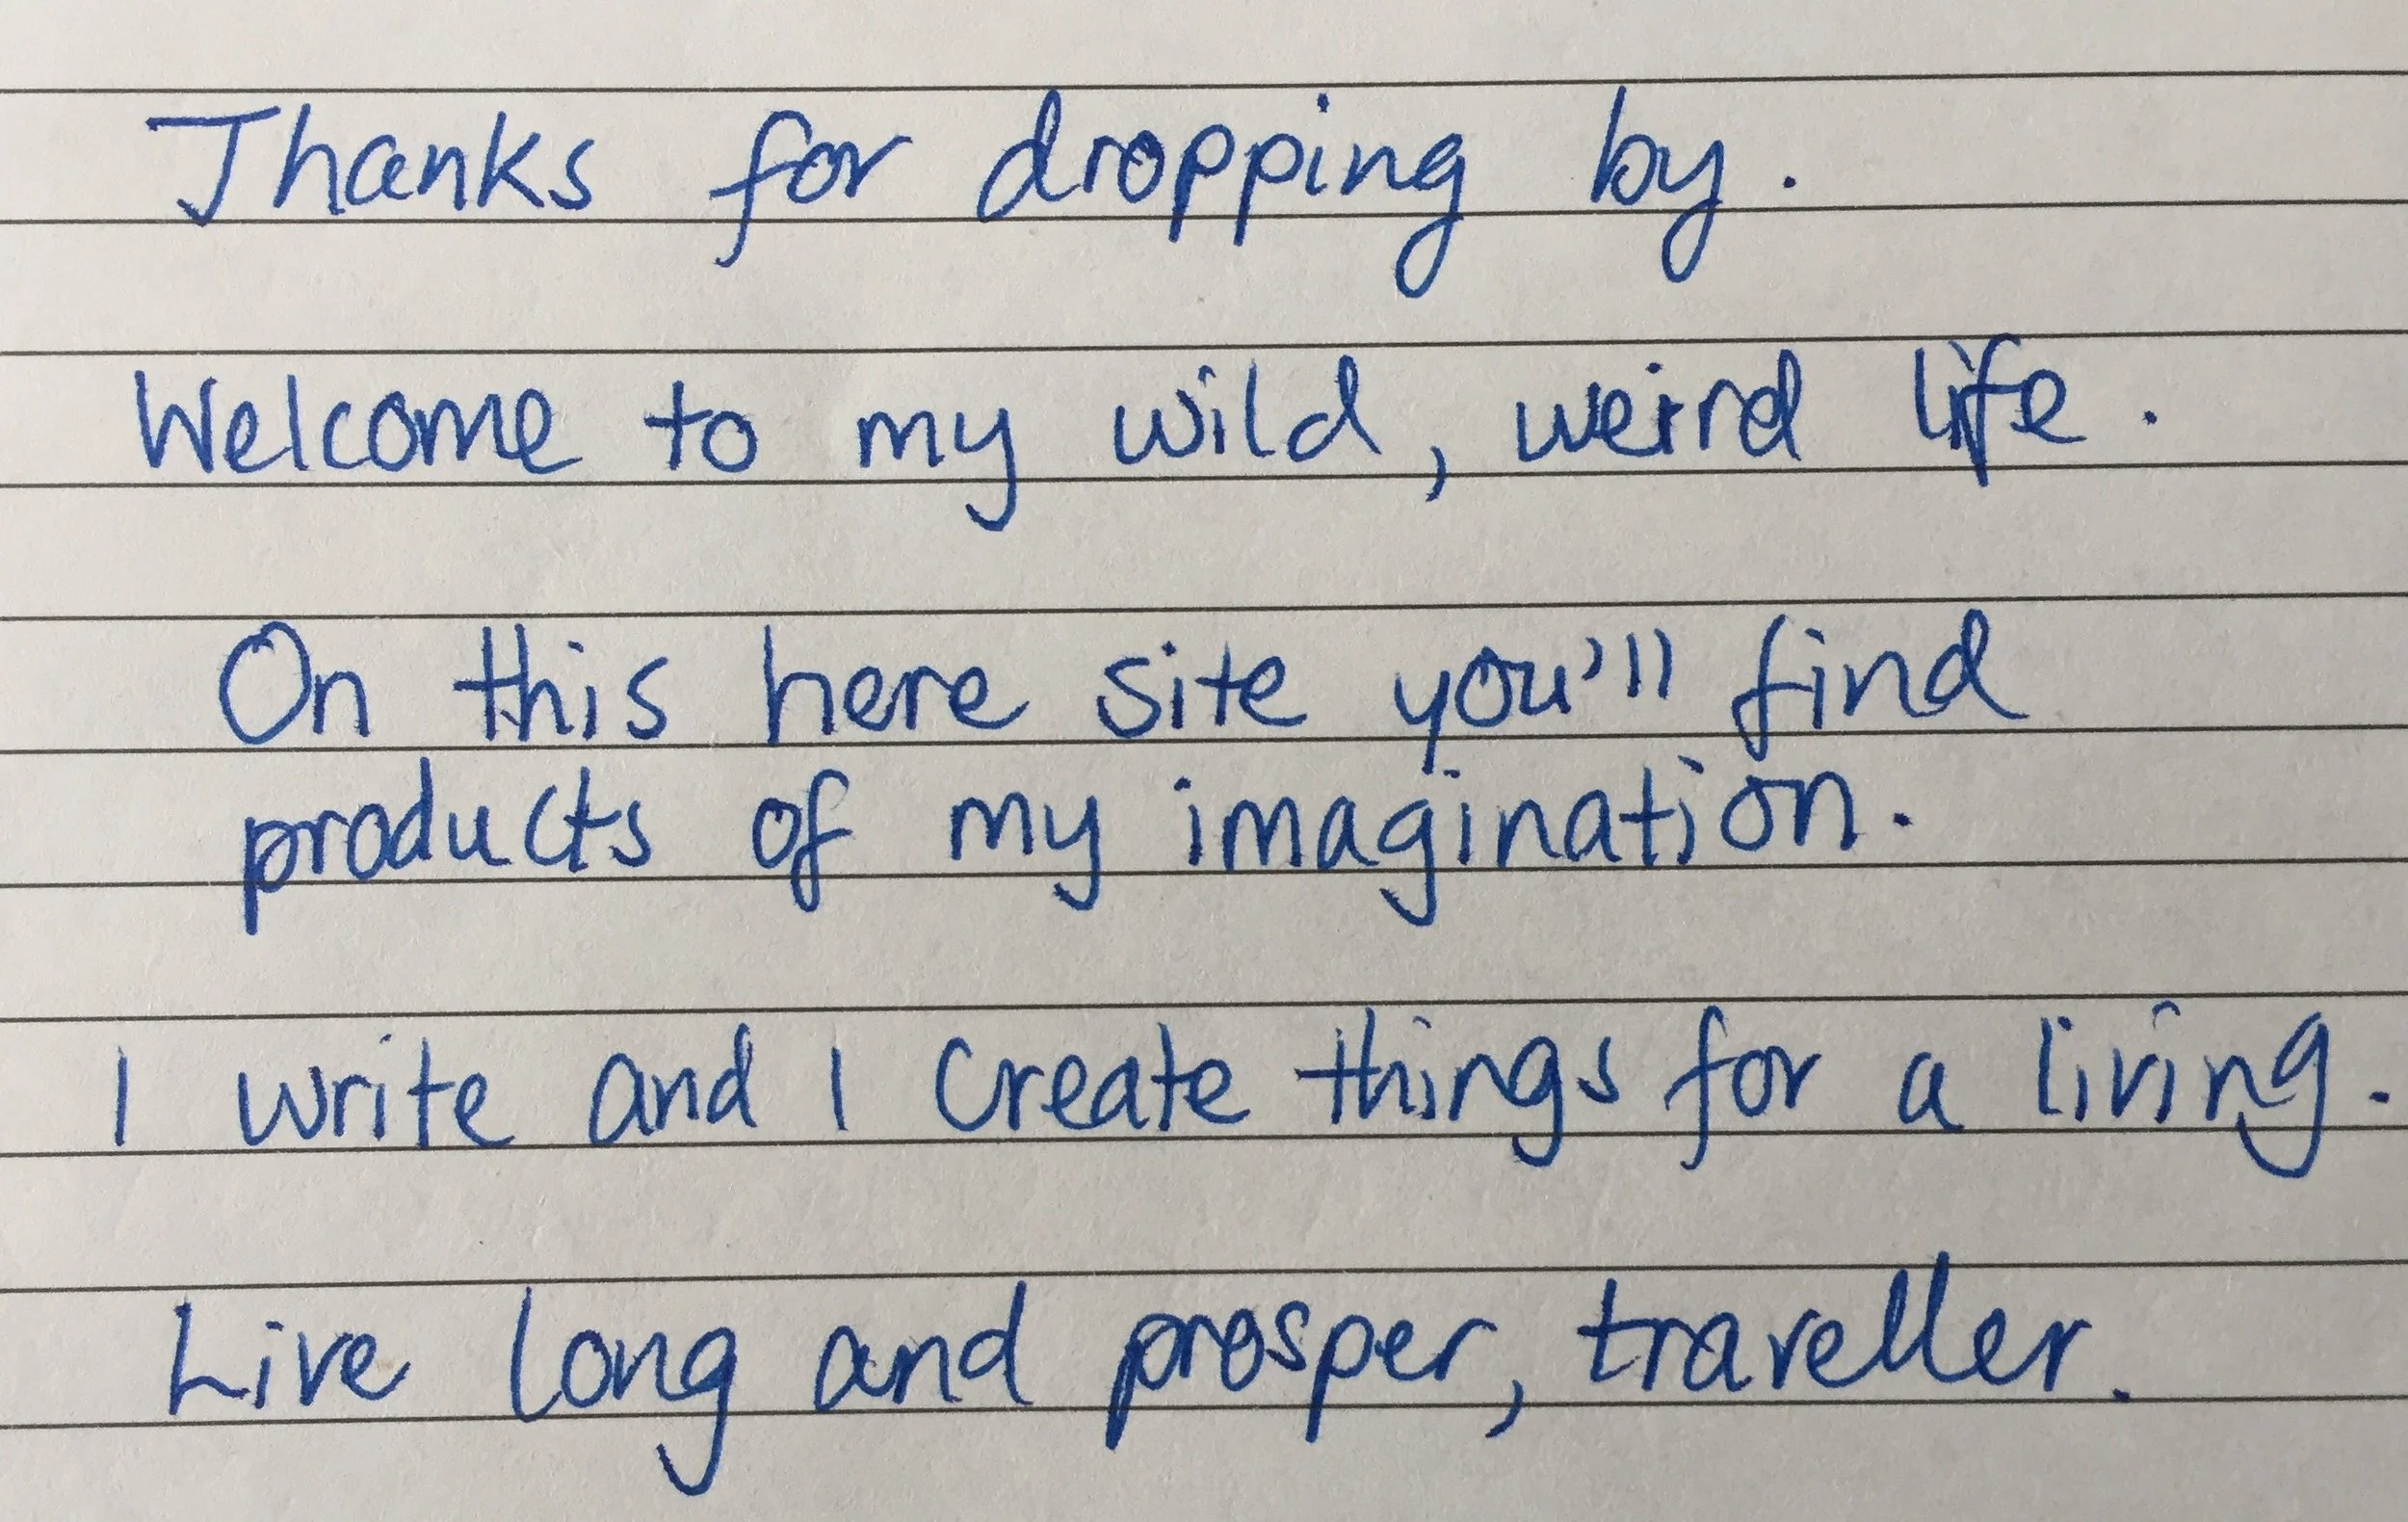 Thanks for dropping by.
Welcome to my wild, weird life.
On this here site you'll find
products of my imagination.
I write and I create things for a living.
Live long and prosper, traveller.